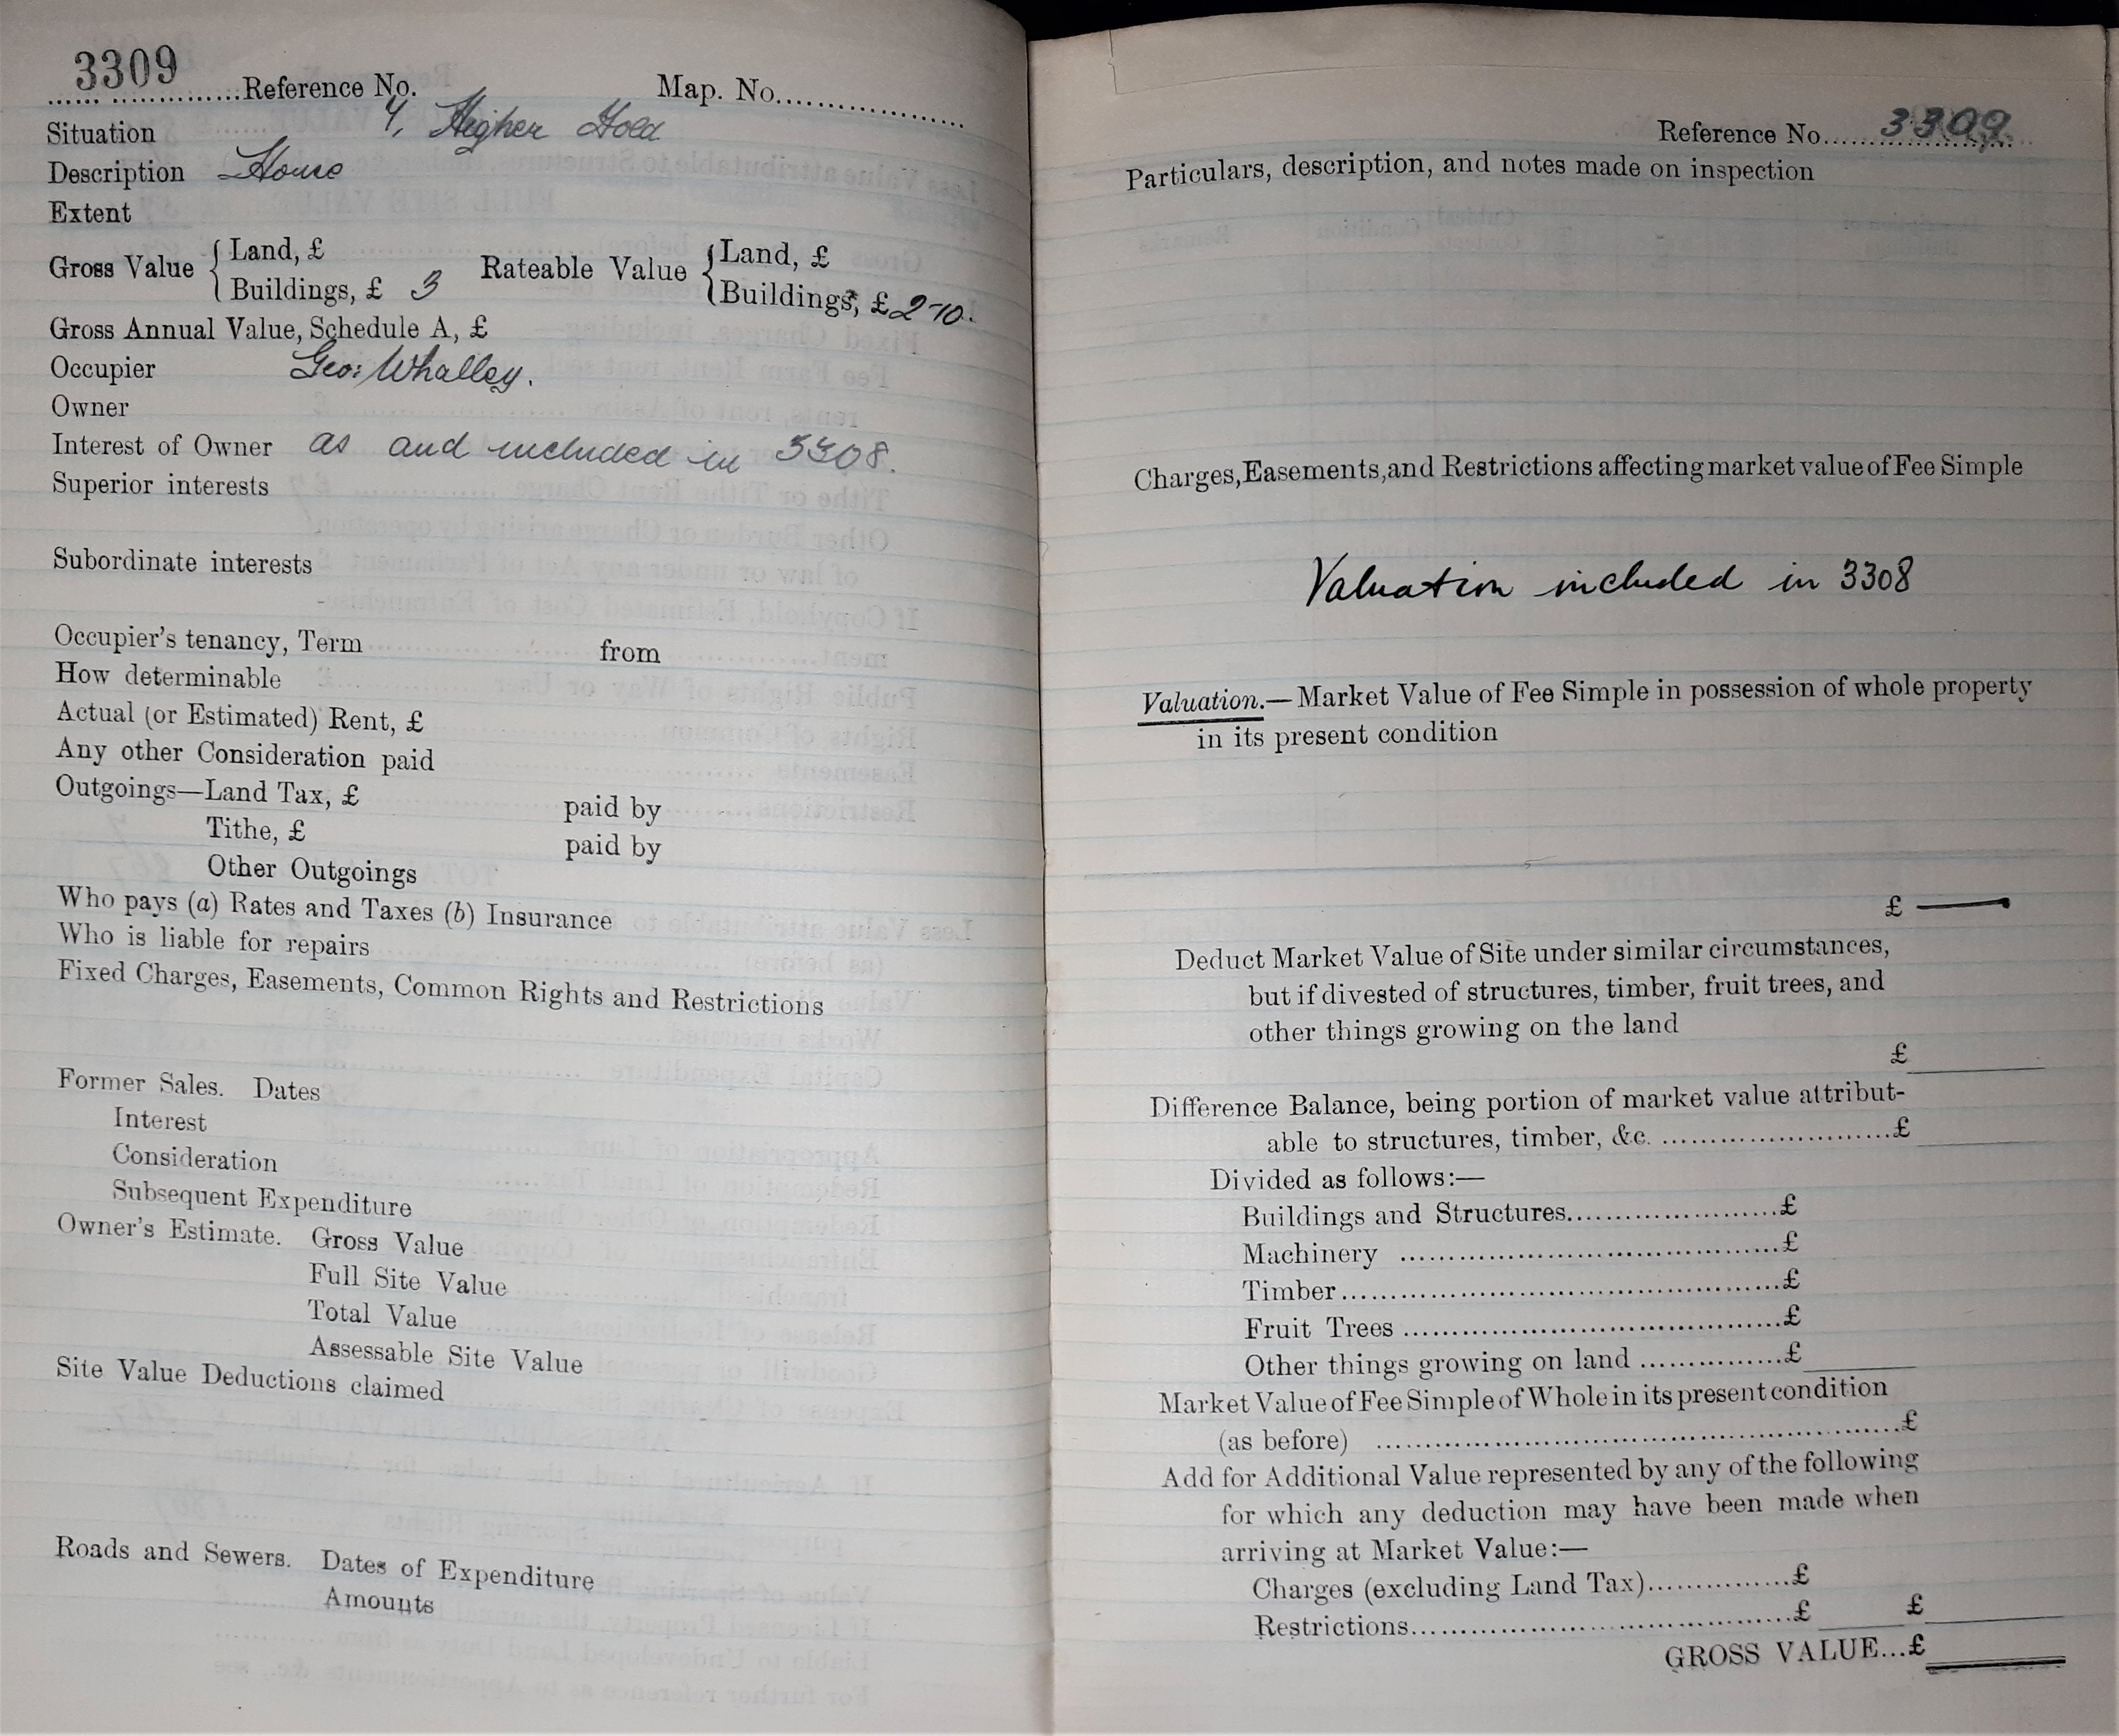 3309
Reference No. Map. No.
Situation 4, Higher Hold
Description House
Extent
Gross Value { Land, £ Rateable Value { Land, £
Buildings, £ 3 Buildings, £ 2-10.
Gross Annual Value, Schedule A, £
Occupier Geo: Whalley.
Owner
Interest of Owner as and included in 3308.
Superior interests
Subordinate interests
Occupier's tenancy, Term from
How determinable
Actual (or Estimated) Rent, £
Any other Consideration paid
Outgoings—Land Tax, £ paid by
Tithe, £ paid by
Other Outgoings
Who pays (a) Rates and Taxes (b) Insurance
Who is liable for repairs
Fixed Charges, Easements, Common Rights and Restrictions
Former Sales. Dates
Interest
Consideration
Subsequent Expenditure
Owner's Estimate. Gross Value
Full Site Value
Total Value
Assessable Site Value
Site Value Deductions claimed
Roads and Sewers. Dates of Expenditure
Amounts
Reference No. 3309
Particulars, description, and notes made on inspection
Charges, Easements, and Restrictions affecting market value of Fee Simple
Valuation included in 3308
Valuation.—Market Value of Fee Simple in possession of whole property
in its present condition
£ —
Deduct Market Value of Site under similar circumstances,
but if divested of structures, timber, fruit trees, and
other things growing on the land
£
Difference Balance, being portion of market value attribut-
able to structures, timber, &c. ........................£
Divided as follows:—
Buildings and Structures......................£
Machinery ......................£
Timber......................£
Fruit Trees ......................£
Other things growing on land ...............£
Market Value of Fee Simple of Whole in its present condition
(as before) ......................£
Add for Additional Value represented by any of the following
for which any deduction may have been made when
arriving at Market Value:—
Charges (excluding Land Tax)...............£
Restrictions......................£ £
GROSS VALUE...£